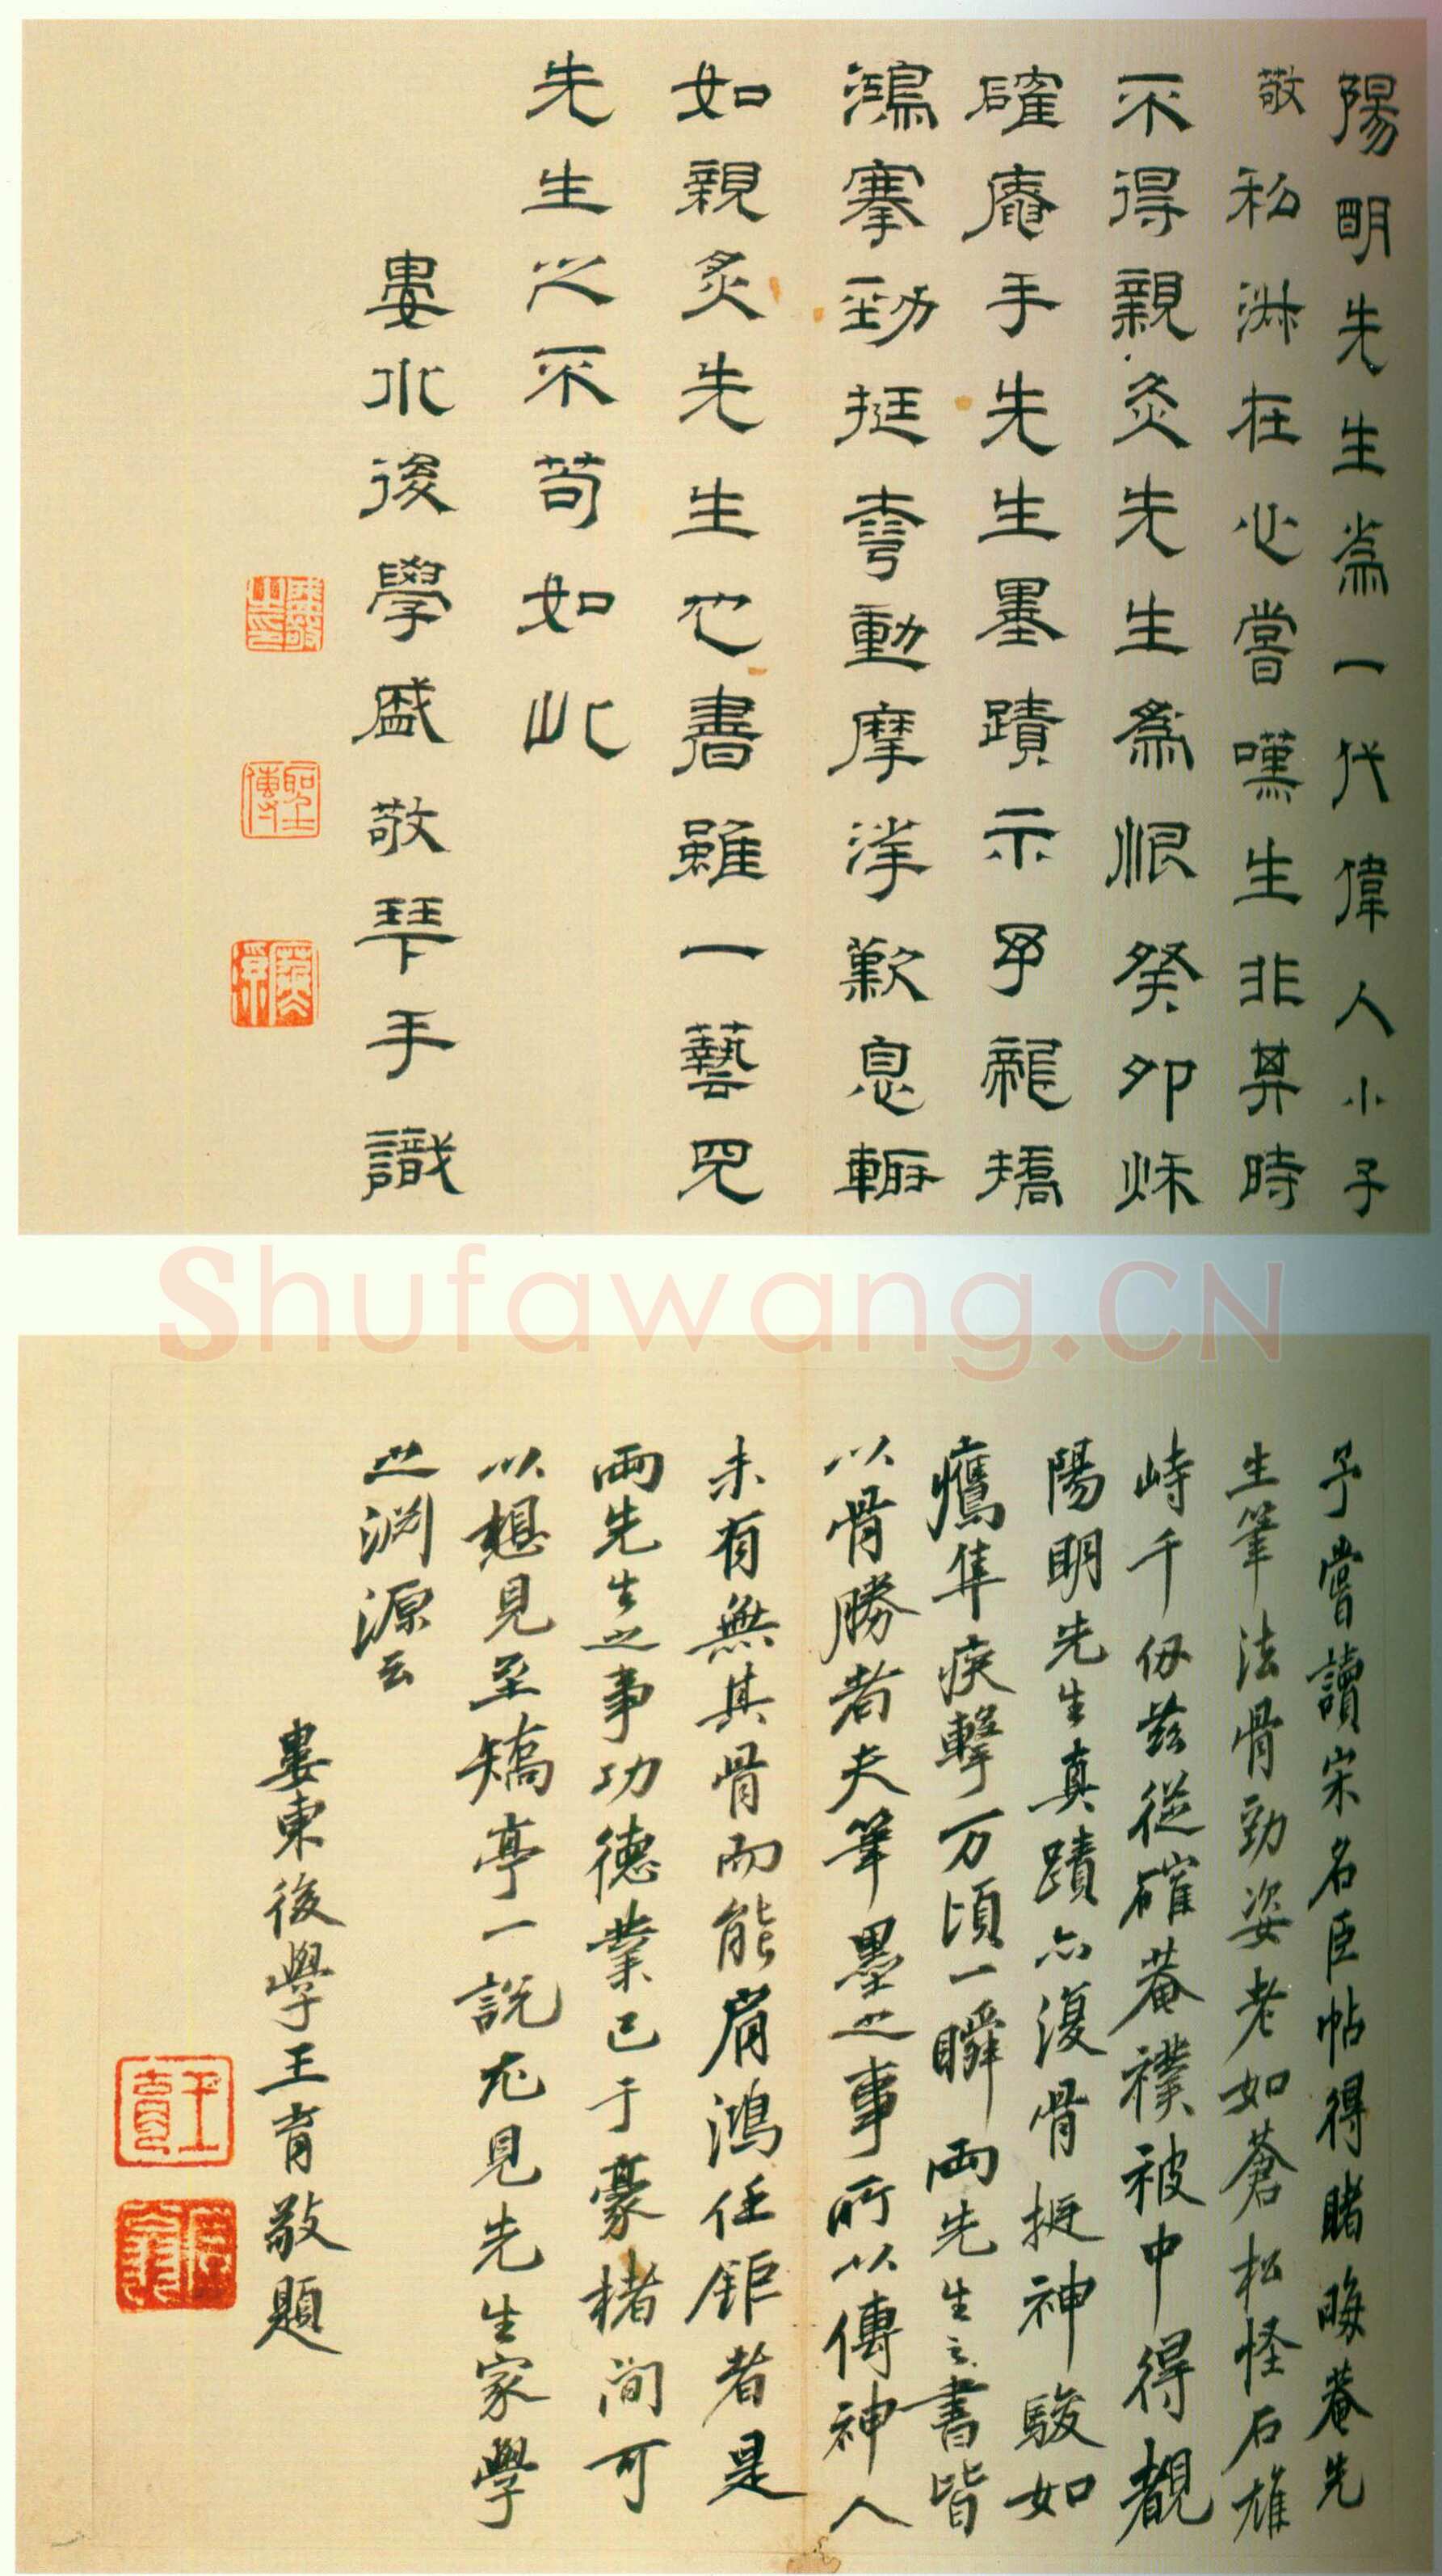 陽明先生爲一代偉人小子
敬私淑在心嘗嘆生非其時
不得親炙先生爲恨癸卯秋
確庵手先生墨蹟示予龍矯
鴻搴勁挺弯動摩挲歎息輙
如親炙先生也書雖一藝罒
先生之不苟如此
婁水後學盛敬琴手識
聖傳
Shufawang.CN
予嘗讀宋名臣帖得睹晦菴先
生筆法骨勁姿老如蒼松怪石雄
峙千仭兹從確菴襆被中得覩
陽明先生真蹟亦復骨挺神駿如
鷹隼疾擊万頃一瞬兩先生之書皆
以骨勝者夫筆墨之事所以傳神人
未有無其骨而能肩鴻任鉅者是
兩先生之事功德業已于豪楮间可
以想見至矯亭一説尤見先生家學
之渊源云
婁東後學王育敬題
王育